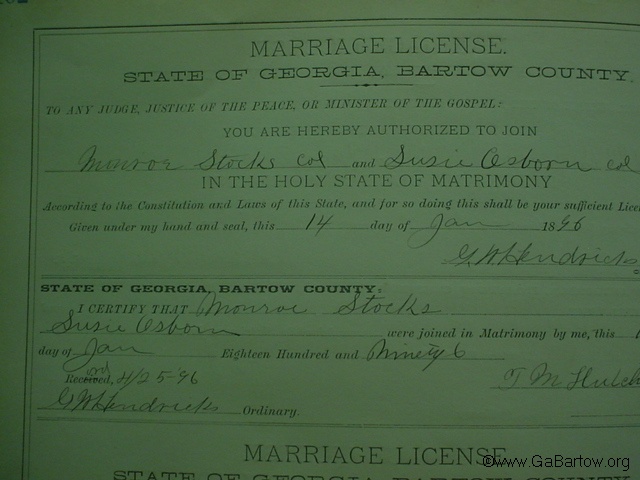 MARRIAGE LICENSE.
STATE OF GEORGIA, BARTOW COUNTY.
TO ANY JUDGE, JUSTICE OF THE PEACE, OR MINISTER OF THE GOSPEL:
YOU ARE HEREBY AUTHORIZED TO JOIN
Monroe Stocks col and Susie Osborn col
IN THE HOLY STATE OF MATRIMONY
According to the Constitution and Laws of this State, and for so doing this shall be your sufficient Lice
Given under my hand and seal, this 14 day of Jan 1896
G. W. Hendricks
STATE OF GEORGIA, BARTOW COUNTY:
I CERTIFY THAT Monroe Stocks
Susie Osborn were joined in Matrimony by me, this
day of Jan Eighteen Hundred and Ninety 6
4/25-96 T M Hutch
G W Hendricks Ordinary.
MARRIAGE LICENSE.
STATE OF GEORGIA, BARTOW COUNTY.
©www.GaBartow.org